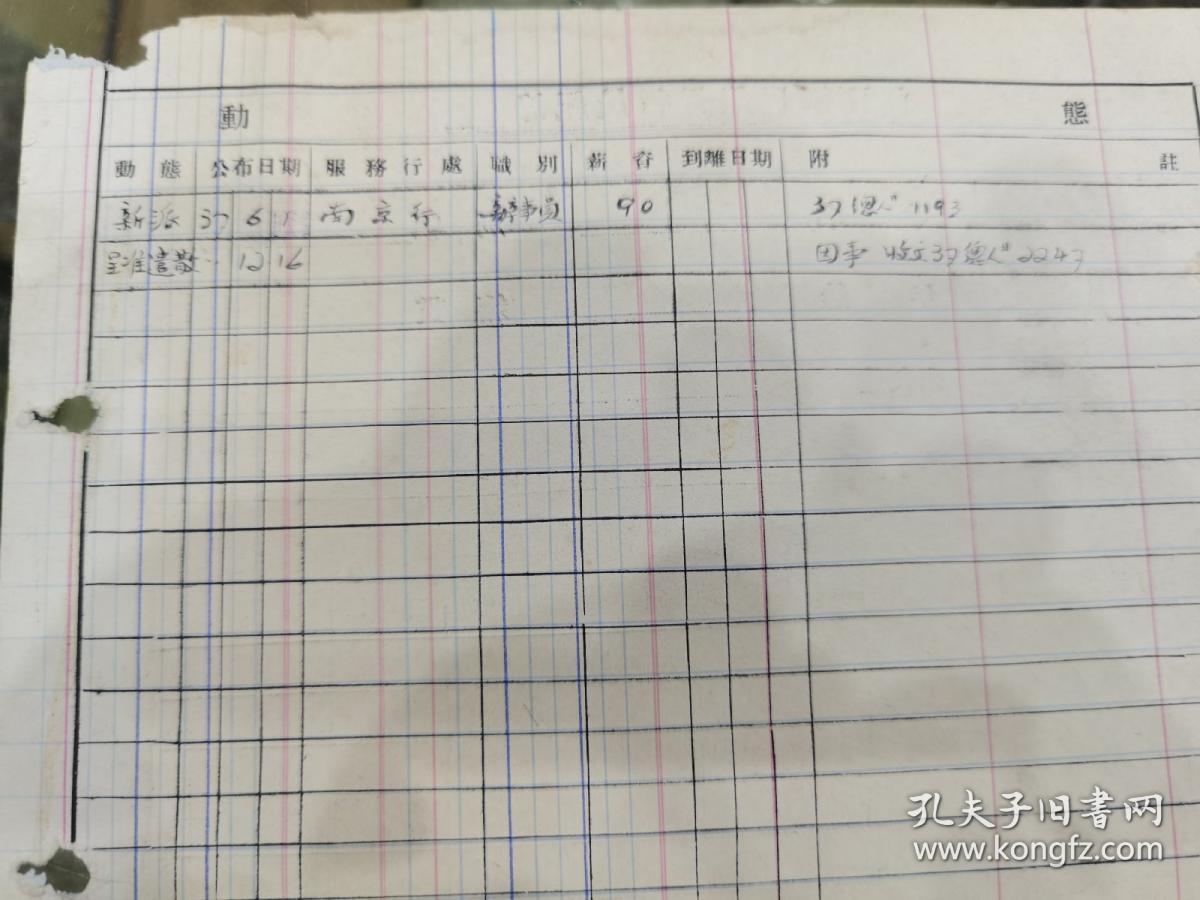 動 態
動態 公布日期 服務行處 職別 薪容 到離日期 附 註
新派 37 6 南京行 辦事員 90 37總人 1193
呈准遣散 〃 12 16 因事 收文37總人 2247
孔夫子旧書网
www.kongfz.com